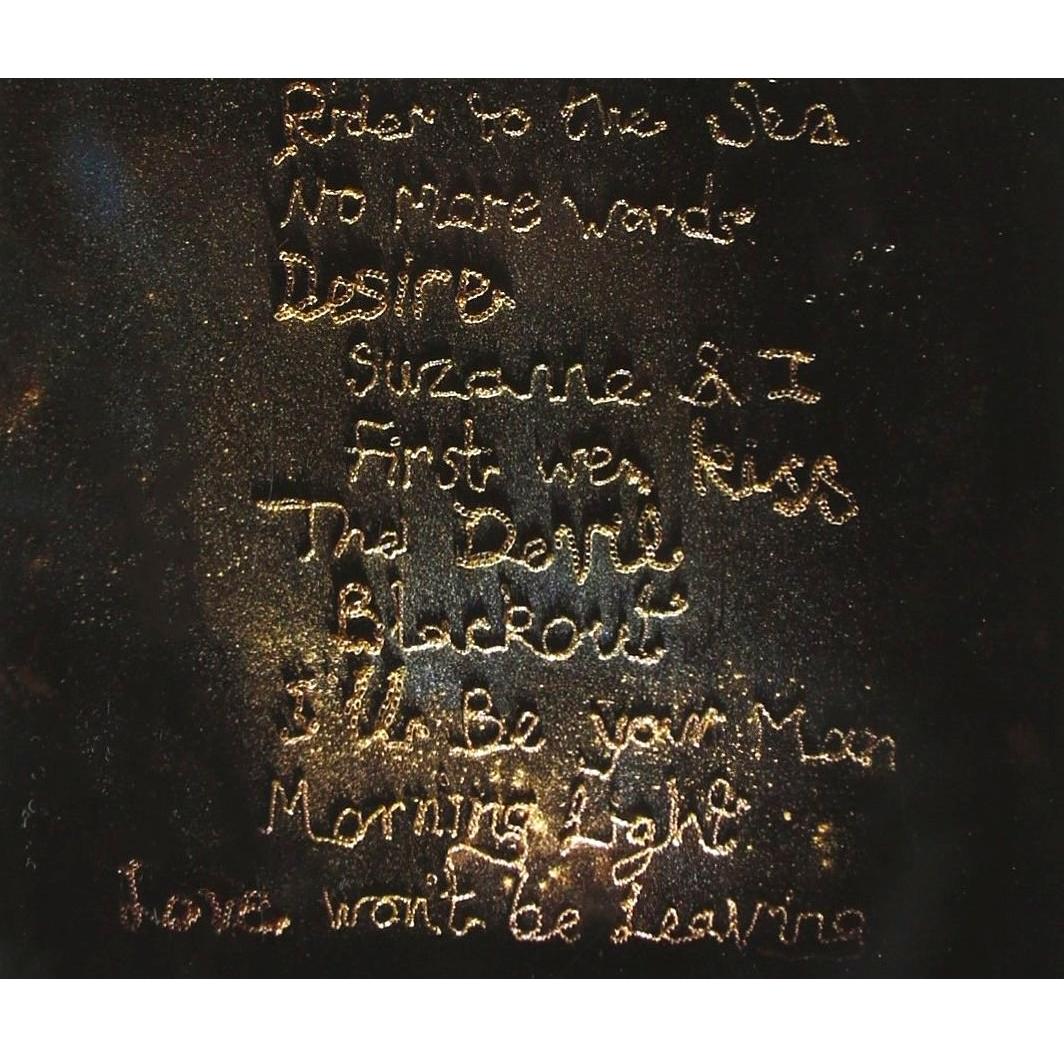 Rider to the Sea
No More Words
Desire
Suzanne & I
First we kiss
The Devil
Blackout
I'll Be your Man
Morning Light
Love won't be Leaving